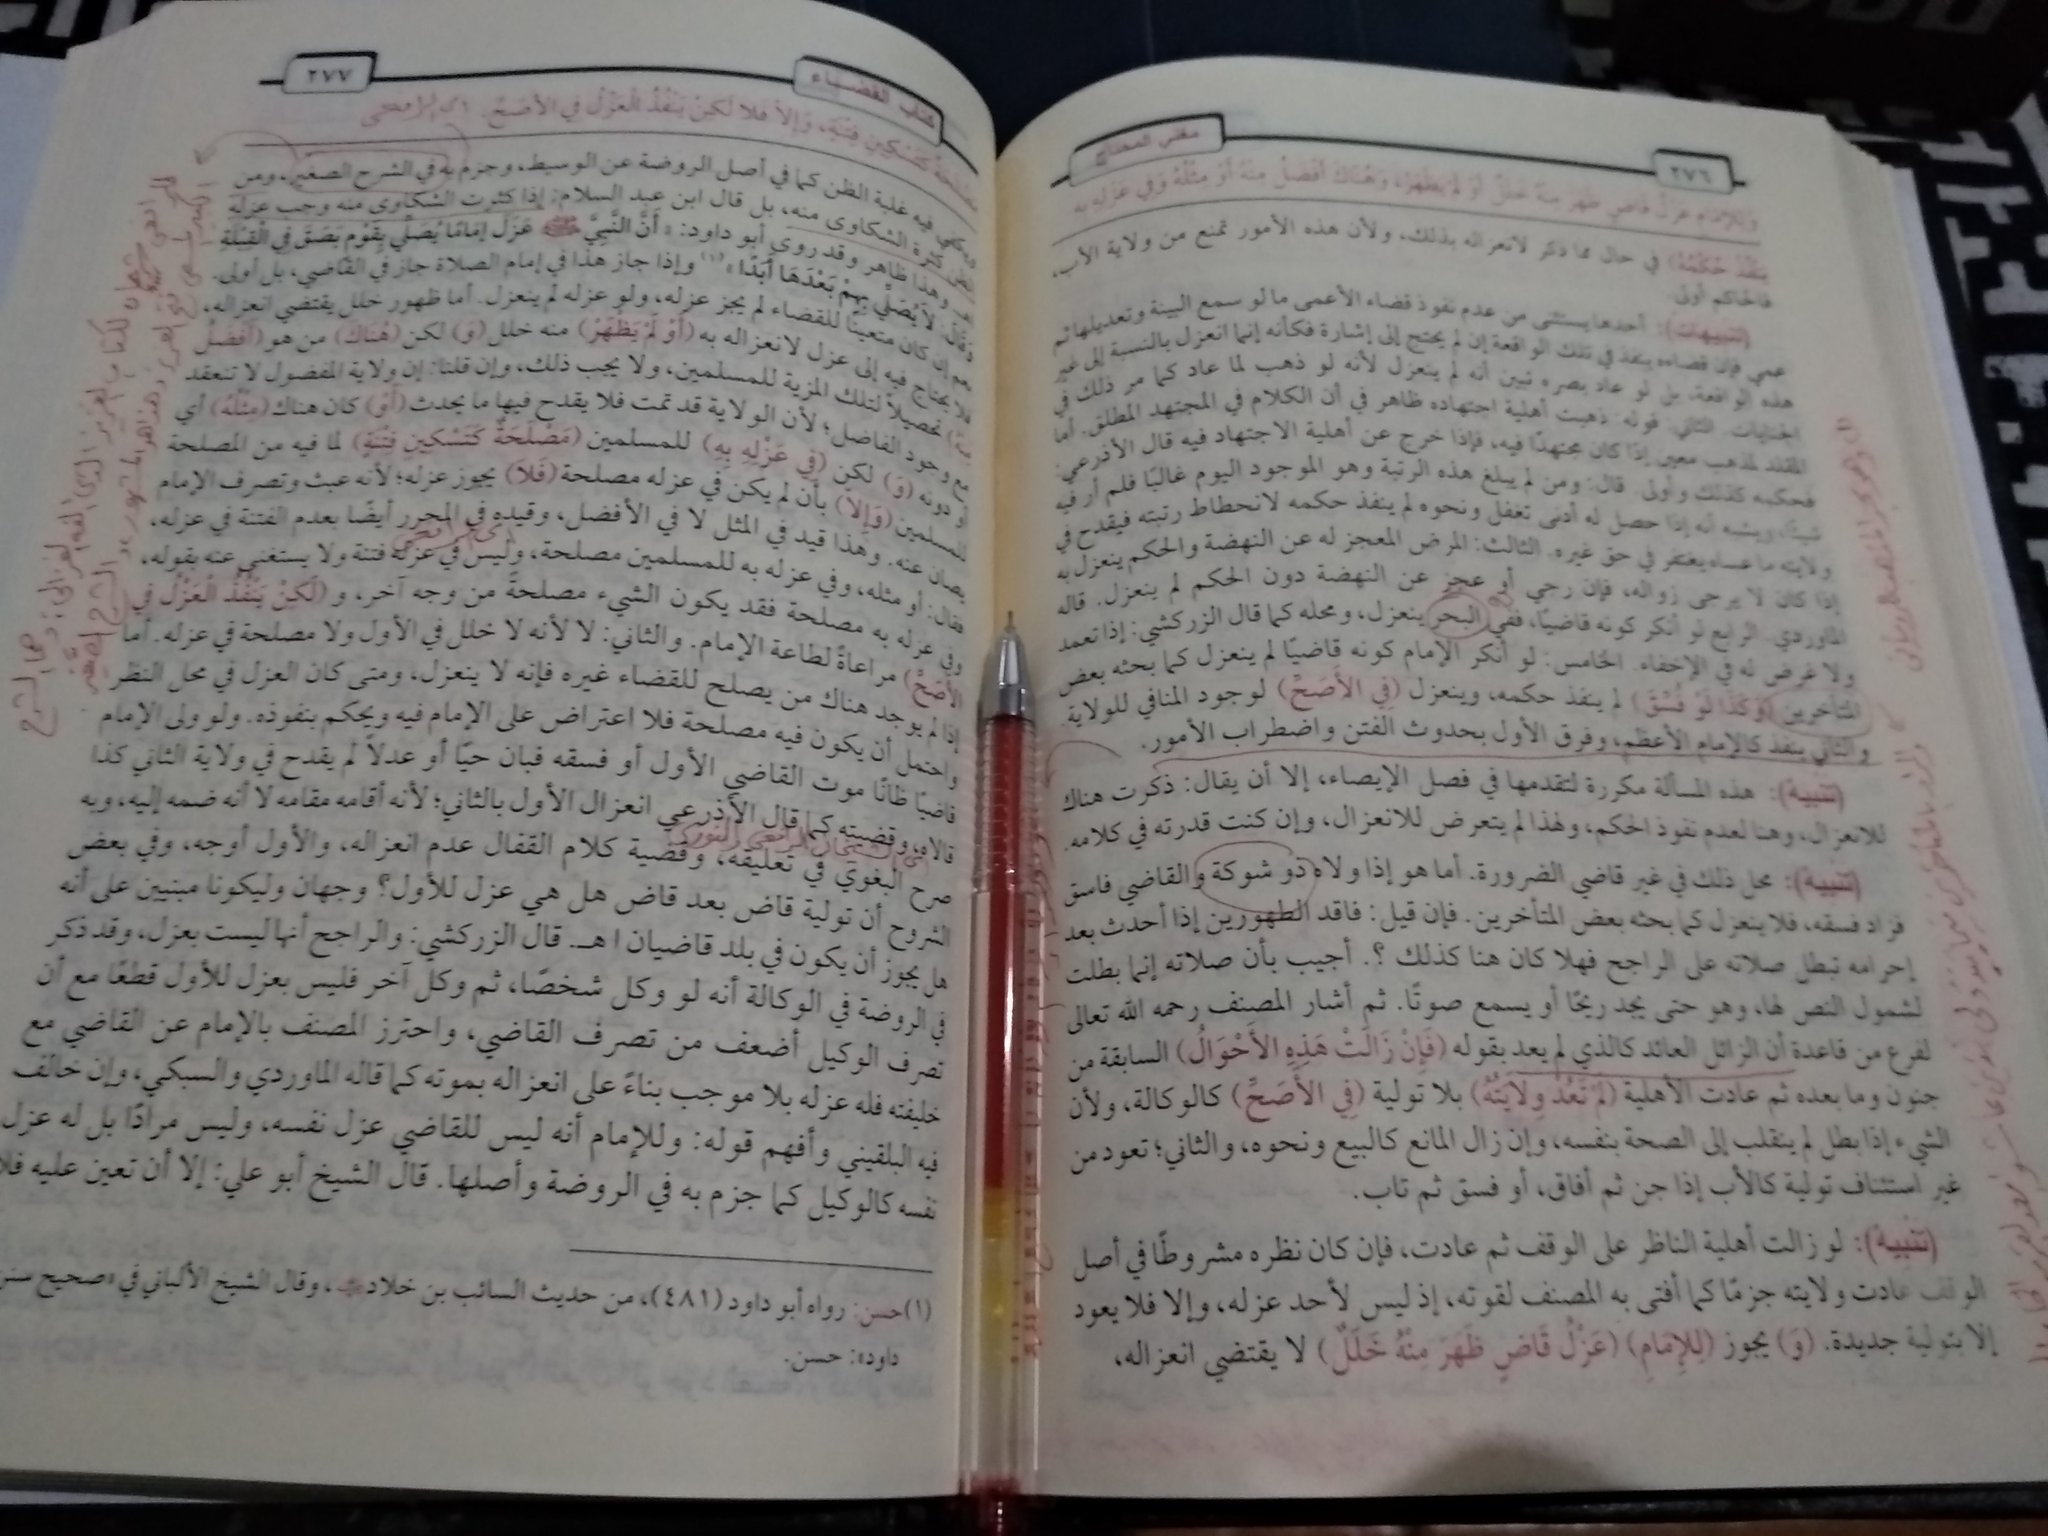 ٢٧٦
مغني المحتاج
وَلِلإِمَامِ عَزْلُ قَاضٍ ظَهَرَ مِنْهُ خَلَلٌ أَوْ لَمْ يَظْهَرْ، وَهُنَاكَ أَفْضَلُ مِنْهُ أَوْ مِثْلُهُ وَفِي عَزْلِهِ بِهِ
يَنْفُذْ حُكْمُهُ) في حال مما ذكر لانعزاله بذلك، ولأن هذه الأمور تمنع من ولاية الأب،
فالحاكم أولى.
(تنبيهات): أحدها يستثنى من عدم نفوذ قضاء الأعمى ما لو سمع البينة وتعديلها ثم
عمي فإن قضاءه ينفذ في تلك الواقعة إن لم يحتج إلى إشارة فكأنه إنما انعزل بالنسبة إلى غير
هذه الواقعة، بل لو عاد بصره تبين أنه لم ينعزل لأنه لو ذهب لما عاد كما مر ذلك في
الجنايات. الثاني: قوله: ذهبت أهلية اجتهاده ظاهر في أن الكلام في المجتهد المطلق. أما
المقلد لمذهب معين إذا كان مجتهدًا فيه، فإذا خرج عن أهلية الاجتهاد فيه قال الأذرعي:
فحكمه كذلك وأولى. قال: ومن لم يبلغ هذه الرتبة وهو الموجود اليوم غالبًا فلم أر فيه
شيئًا، ويشبه أنه إذا حصل له أدنى تغفل ونحوه لم ينفذ حكمه لانحطاط رتبته فيقدح في
ولايته ما عساه يغتفر في حق غيره. الثالث: المرض المعجز له عن النهضة والحكم ينعزل به
إذا كان لا يرجى زواله، فإن رجي أو عجز عن النهضة دون الحكم لم ينعزل. قاله
الماوردي. الرابع لو أنكر كونه قاضيًا، ففي البحر ينعزل، ومحله كما قال الزركشي: إذا تعمد
ولا غرض له في الإخفاء. الخامس: لو أنكر الإمام كونه قاضيًا لم ينعزل كما بحثه بعض
المتأخرين (وَكَذَا لَوْ فَسَقَ) لم ينفذ حكمه، وينعزل (فِي الأَصَحِّ) لوجود المنافي للولاية.
والثاني ينفذ كالإمام الأعظم، وفرق الأول بحدوث الفتن واضطراب الأمور.
(تنبيه): هذه المسألة مكررة لتقدمها في فصل الإيصاء، إلا أن يقال: ذكرت هناك
للانعزال، وهنا لعدم نفوذ الحكم، ولهذا لم يتعرض للانعزال، وإن كنت قدرته في كلامه.
(تنبيه): محل ذلك في غير قاضي الضرورة. أما هو إذا ولاه ذو شوكة والقاضي فاسق
فزاد فسقه، فلا ينعزل كما بحثه بعض المتأخرين. فإن قيل: فاقد الطهورين إذا أحدث بعد
إحرامه تبطل صلاته على الراجح فهلا كان هنا كذلك ؟. أجيب بأن صلاته إنما بطلت
لشمول النص لها، وهو حتى يجد ريحًا أو يسمع صوتًا. ثم أشار المصنف رحمه الله تعالى
لفرع من قاعدة أن الزائل العائد كالذي لم يعد بقوله (فَإِنْ زَالَتْ هَذِهِ الأَحْوَالُ) السابقة من
جنون وما بعده ثم عادت الأهلية (لَمْ تَعُدْ وِلاَيَتُهُ) بلا تولية (فِي الأَصَحِّ) كالوكالة، ولأن
الشيء إذا بطل لم ينقلب إلى الصحة بنفسه، وإن زال المانع كالبيع ونحوه، والثاني؛ تعود من
غير استئناف تولية كالأب إذا جن ثم أفاق، أو فسق ثم تاب.
(تنبيه): لو زالت أهلية الناظر على الوقف ثم عادت، فإن كان نظره مشروطًا في أصل
الوقف عادت ولايته جزمًا كما أفتى به المصنف لقوته، إذ ليس لأحد عزله، وإلا فلا يعود
إلا بتولية جديدة. (وَ) يجوز (لِلإِمَامِ) (عَزْلُ قَاضٍ ظَهَرَ مِنْهُ خَلَلٌ) لا يقتضي انعزاله،
كتاب القضاء
٢٧٧
مَصْلَحَةٌ كَتَسْكِينِ فِتْنَةٍ، وَإِلاَّ فَلا لَكِنْ يَنْفُذُ الْعَزْلُ فِي الأَصَحِّ.
ويكفي فيه غلبة الظن كما في أصل الروضة عن الوسيط، وجزم به في الشرح الصغير، ومن
الظن كثرة الشكاوى منه، بل قال ابن عبد السلام: إذا كثرت الشكاوى منه وجب عزله
اهـ. وهذا ظاهر وقد روى أبو داود: «أَنَّ النَّبِيَّ ﷺ عَزَلَ إِمَامًا يُصَلِّي بِقَوْمٍ بَصَقَ فِي الْقِبْلَةِ
وَقَالَ: لاَ يُصَلِّي بِهِمْ بَعْدَهَا أَبَدًا»(١) وإذا جاز هذا في إمام الصلاة جاز في القاضي، بل أولى.
نعم إن كان متعينًا للقضاء لم يجز عزله، ولو عزله لم ينعزل. أما ظهور خلل يقتضي انعزاله،
فلا يحتاج فيه إلى عزل لانعزاله به (أَوْ لَمْ يَظْهَرْ) منه خلل (وَ) لكن (هُنَاكَ) من هو (أَفْضَلُ
مِنْهُ) تحصيلاً لتلك المزية للمسلمين، ولا يجب ذلك، وإن قلنا: إن ولاية المفضول لا تنعقد
مع وجود الفاضل؛ لأن الولاية قد تمت فلا يقدح فيها ما يحدث (أَوْ) كان هناك (مِثْلُهُ) أي
أو دونه (وَ) لكن (فِي عَزْلِهِ بِهِ) للمسلمين (مَصْلَحَةٌ كَتَسْكِينِ فِتْنَةٍ) لما فيه من المصلحة
للمسلمين (وَإِلاَّ) بأن لم يكن في عزله مصلحة (فَلاَ) يجوز عزله؛ لأنه عبث وتصرف الإمام
يصان عنه. وهذا قيد في المثل لا في الأفضل، وقيده في المحرر أيضًا بعدم الفتنة في عزله،
فقال: أو مثله، وفي عزله به للمسلمين مصلحة، وليس في عزله فتنة ولا يستغنى عنه بقوله،
وفي عزله به مصلحة فقد يكون الشيء مصلحةً من وجه آخر، و (لَكِنْ يَنْفُذُ الْعَزْلُ فِي
الأَصَحِّ) مراعاةً لطاعة الإمام. والثاني: لا لأنه لا خلل في الأول ولا مصلحة في عزله. أما
إذا لم يوجد هناك من يصلح للقضاء غيره فإنه لا ينعزل، ومتى كان العزل في محل النظر
واحتمل أن يكون فيه مصلحة فلا اعتراض على الإمام فيه ويحكم بنفوذه. ولو ولى الإمام
قاضيًا ظانًا موت القاضي الأول أو فسقه فبان حيًا أو عدلاً لم يقدح في ولاية الثاني كذا
قالاه، وقضيته كما قال الأذرعي انعزال الأول بالثاني؛ لأنه أقامه مقامه لا أنه ضمه إليه، وبه
صرح البغوي في تعليقه، وقضية كلام القفال عدم انعزاله، والأول أوجه، وفي بعض
الشروح أن تولية قاض بعد قاض هل هي عزل للأول؟ وجهان وليكونا مبنيين على أنه
هل يجوز أن يكون في بلد قاضيان اهـ. قال الزركشي: والراجح أنها ليست بعزل، وقد ذكر
في الروضة في الوكالة أنه لو وكل شخصًا، ثم وكل آخر فليس بعزل للأول قطعًا مع أن
تصرف الوكيل أضعف من تصرف القاضي، واحترز المصنف بالإمام عن القاضي مع
خليفته فله عزله بلا موجب بناءً على انعزاله بموته كما قاله الماوردي والسبكي، وإن خالف
فيه البلقيني وأفهم قوله: وللإمام أنه ليس للقاضي عزل نفسه، وليس مرادًا بل له عزل
نفسه كالوكيل كما جزم به في الروضة وأصلها. قال الشيخ أبو علي: إلا أن تعين عليه فلا
(١)حسن: رواه أبو داود (٤٨١)، من حديث السائب بن خلاد، وقال الشيخ الألباني في «صحيح سنن
داود»: حسن.